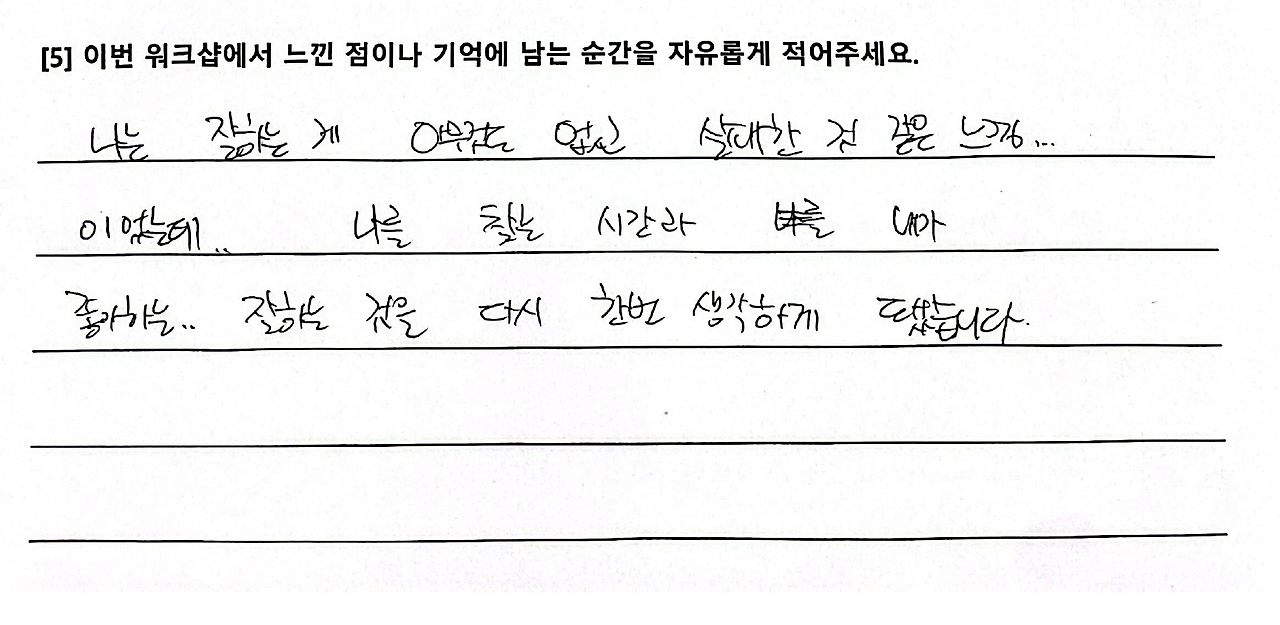 [5] 이번 워크샵에서 느낀 점이나 기억에 남는 순간을 자유롭게 적어주세요.
나는 잘하는 게 아무것도 없고 살대한 것 같은 느낌...
이었는데.. 나를 찾는 시간과 내가
좋아하는.. 잘하는 것을 다시 한번 생각하게 됐습니다.